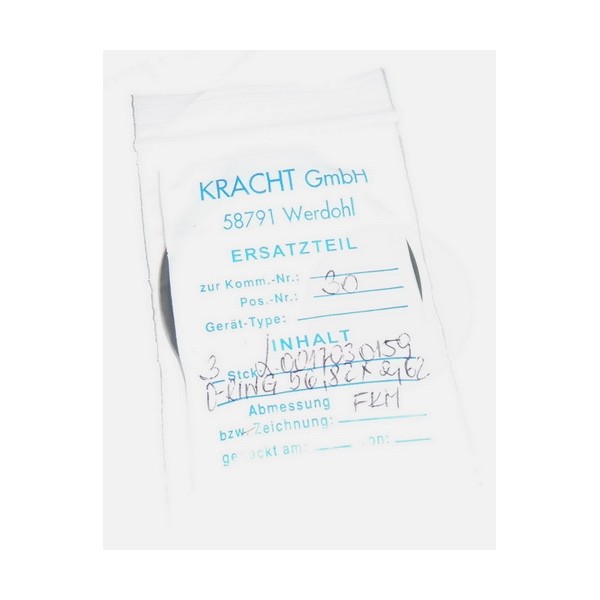 KRACHT GmbH
58791 Werdohl
ERSATZTEIL
zur Komm.-Nr.:
Pos.-Nr.: 30
Gerät-Type:
INHALT
3 Stck
O-RING 56,82 x 2,62
Abmessung FKM
bzw. Zeichnung:
gepackt am: von: